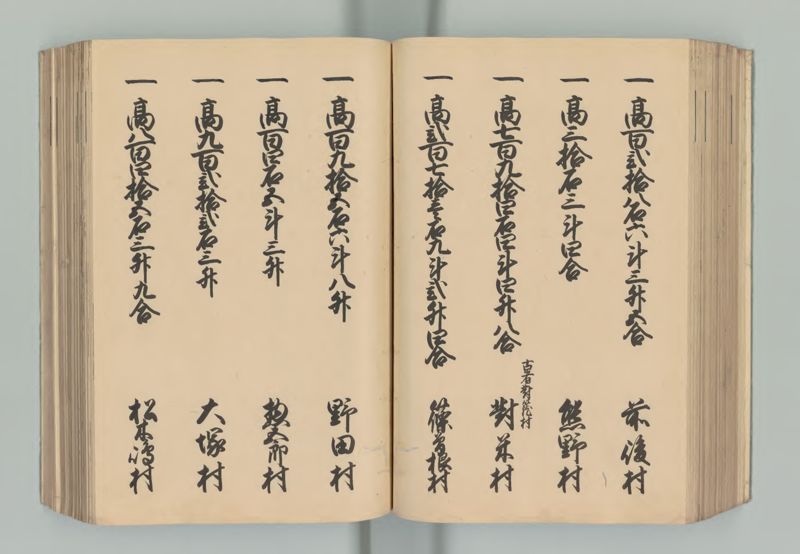 一 高百弐拾八石六斗三升五合 前後村
一 高三拾石三斗四合 熊野村
一 高七百九拾四石四斗四升八合 対米村
古者対茂村
一 高弐百七拾壱石九斗弐升四合 篠曽根村
一 高百九拾五石六斗八升 野田村
一 高百四石五斗三升 惣五郎村
一 高九百弐拾弐石三升 大塚村
一 高八百四拾五石三升九合 松木嶋村